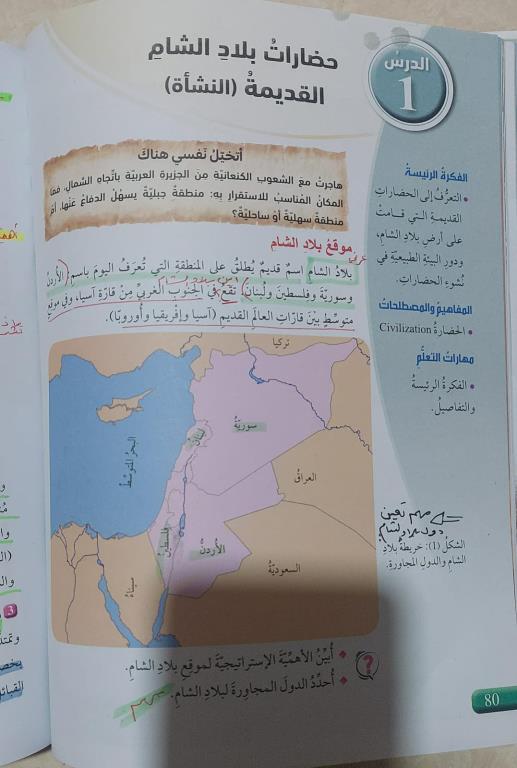 الدرسُ
1
حضاراتُ بلادِ الشامِ
القديمةُ (النشأة)
الفكرةُ الرئيسةُ
• التعرُّفُ إلى الحضاراتِ
القديمةِ التي قامتْ
على أرضِ بلادِ الشامِ،
ودورِ البيئةِ الطبيعيّةِ في
نُشوءِ الحضاراتِ.
المفاهيمُ والمصطلحاتُ
• الحضارةُ Civilization
مهاراتُ التعلُّمِ
• الفكرةُ الرئيسةُ
والتفاصيلُ.
أتخيّلُ نَفْسي هناكَ
هاجرتُ معَ الشعوبِ الكنعانيّةِ مِنَ الجزيرةِ العربيّةِ باتّجاهِ الشمالِ، فما
المكانُ المُناسبُ للاستقرارِ بِهِ: منطقةٌ جبليّةٌ يسهُلُ الدفاعُ عَنْها، أمْ
منطقةٌ سهليّةٌ أوْ ساحليّةٌ؟
موقعُ بلادِ الشامِ
بلادُ الشامِ اسمٌ قديمٌ يُطلَقُ على المنطقةِ التي تُعرَفُ اليومَ باسمِ (الأردنّ
وسوريّةَ وفلسطينَ ولُبنانَ) تقعُ في الجنوبِ الغربيِّ مِنْ قارّةِ آسيا، وفي موقعٍ
متوسّطٍ بينَ قارّاتِ العالمِ القديمِ (آسيا وإفريقيا وأوروبّا).
تركيا
سوريّةُ
لبنانُ
البحرُ المتوسّطُ
العراقُ
فلسطينُ
الأردنُّ
السعوديّةُ
سيناءُ
مهم تعين
دول بلاد الشام
الشكلُ (1): خريطةُ بلادِ
الشامِ والدولِ المجاورةِ.
?
أُبيِّنُ الأهمّيّةَ الإستراتيجيّةَ لموقعِ بلادِ الشامِ.
أُحدِّدُ الدولَ المجاورةَ لبلادِ الشامِ. مهم
80